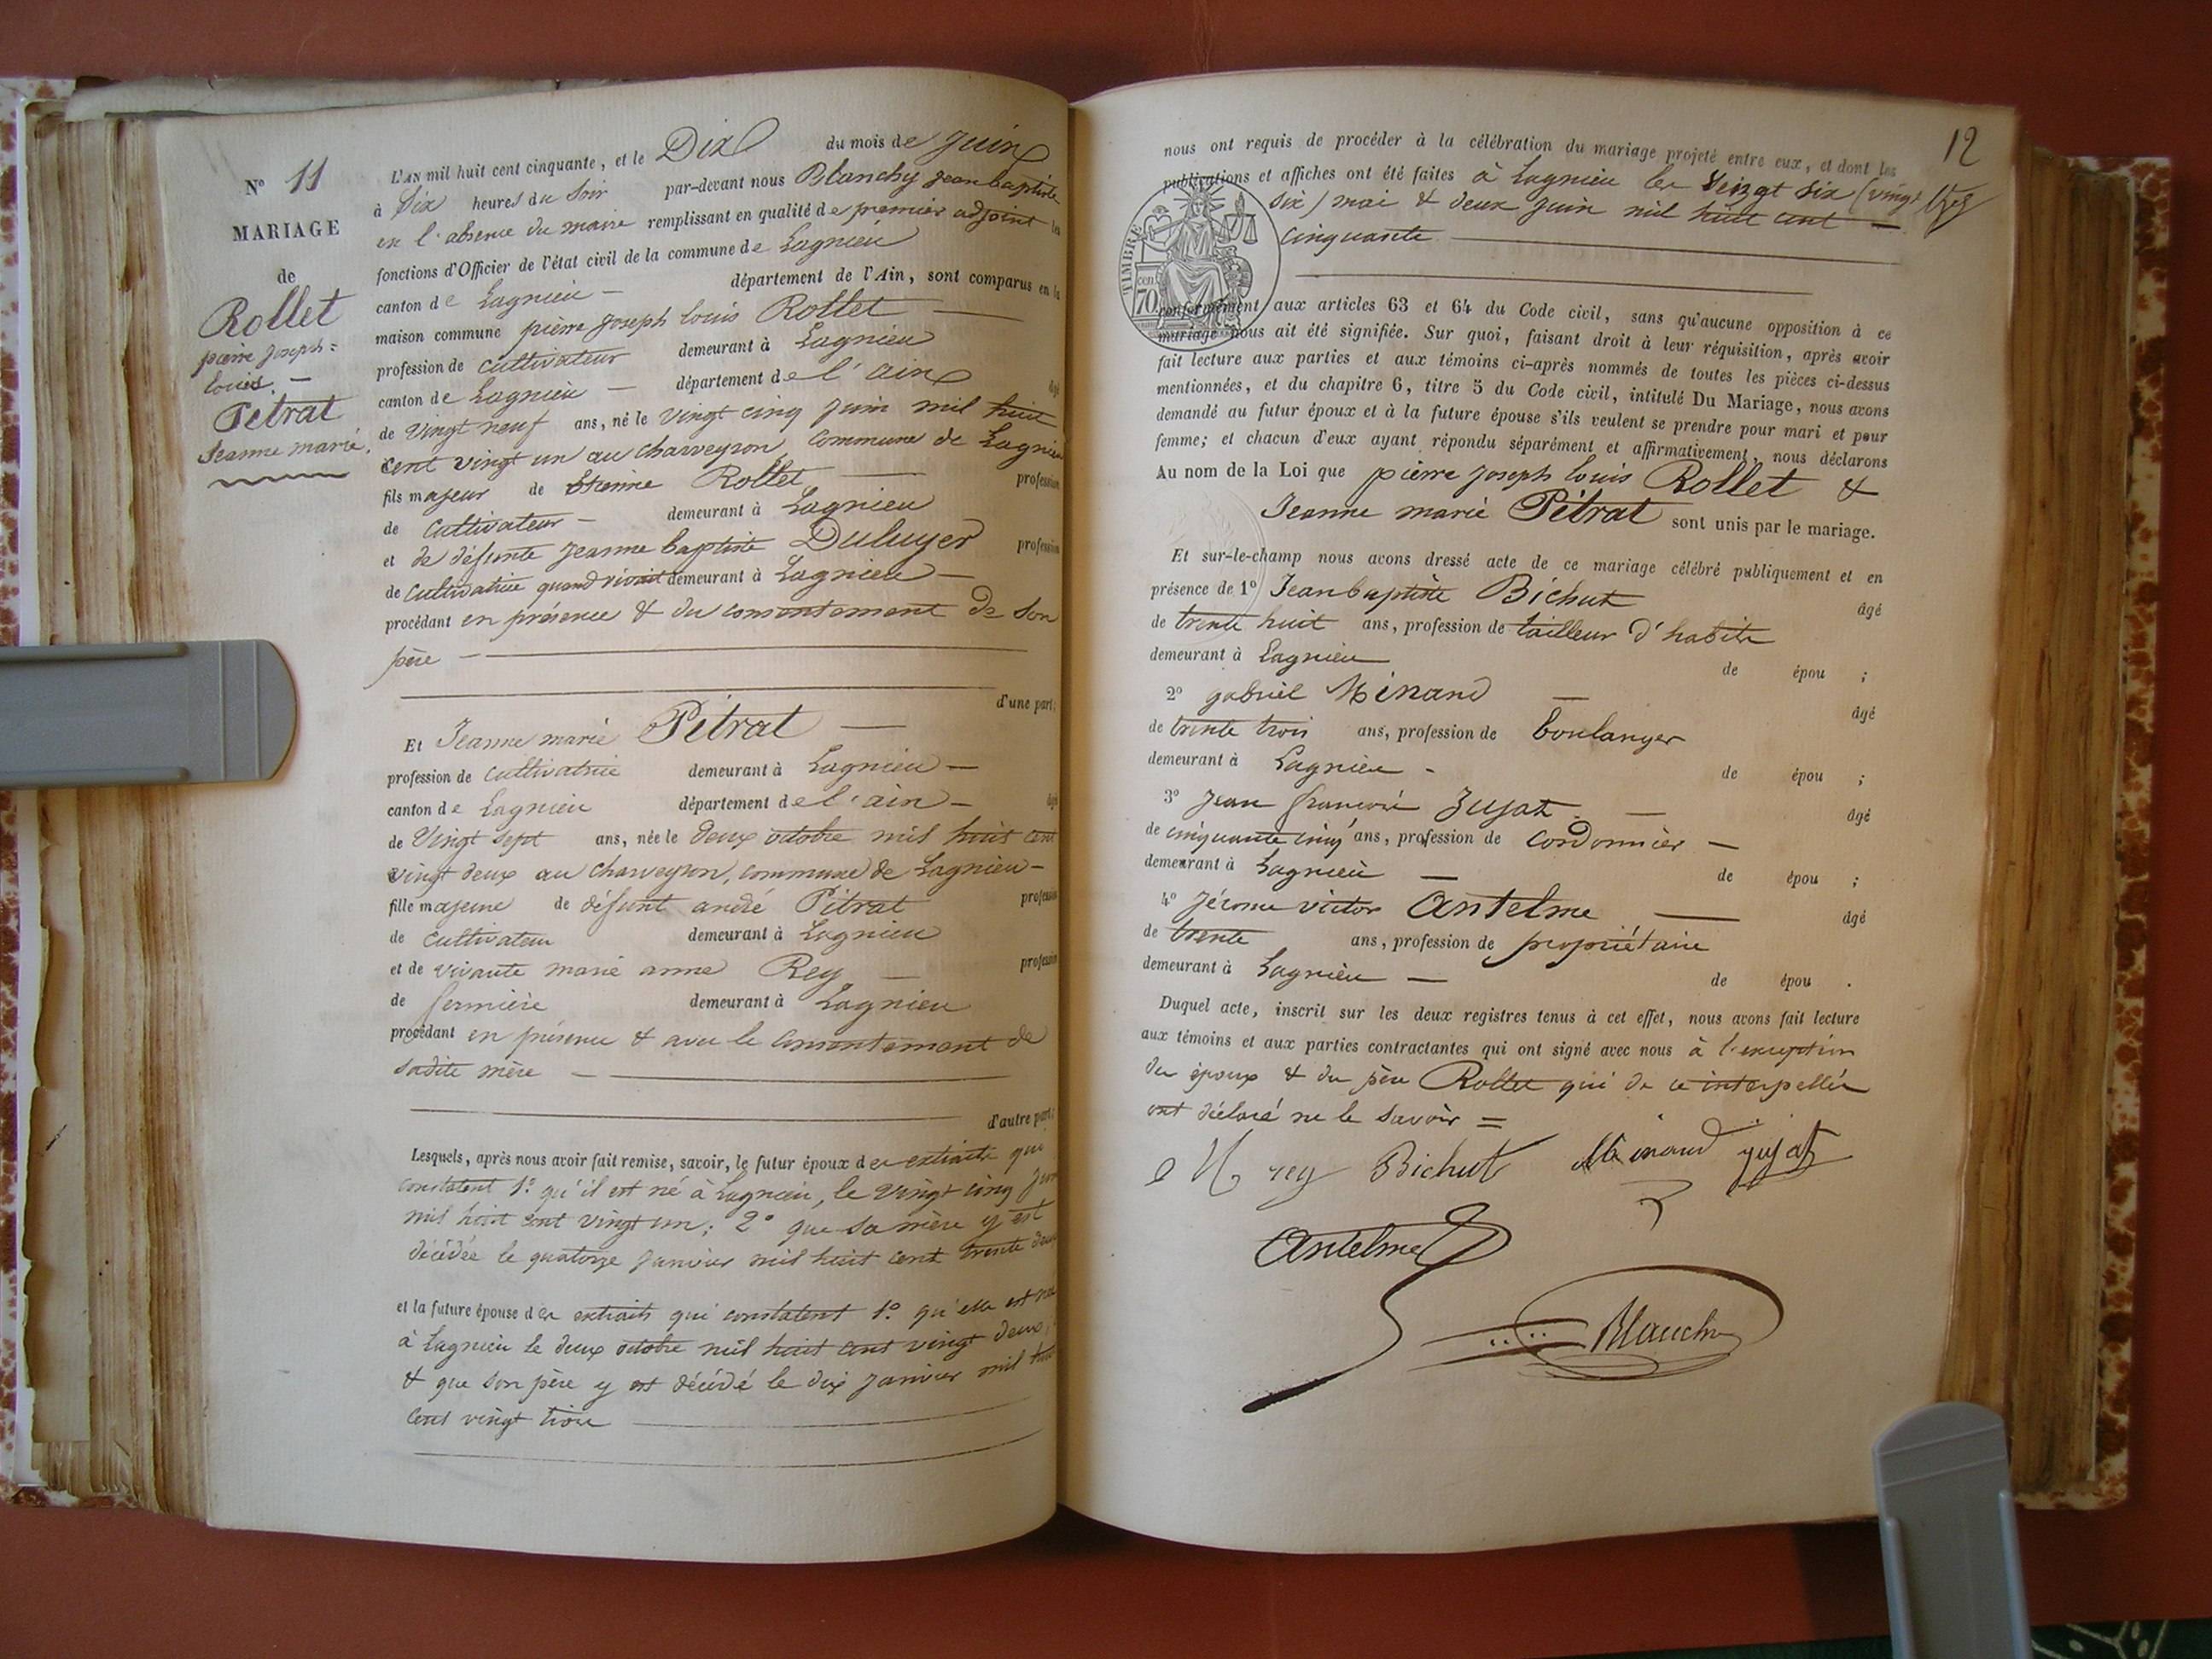 N° 11
MARIAGE
de
Rollet
pierre joseph =
louis. —
Pétrat
Jeanne marie.
L'AN mil huit cent cinquante, et le Dix du mois de juin
à Six heures du Soir par-devant nous Blanchy jean baptiste
en l'absence du maire remplissant en qualité de premier adjoint les
fonctions d'Officier de l'état civil de la commune de Lagnieu
canton de Lagnieu — département de l'Ain, sont comparus en la
maison commune pierre joseph louis Rollet —
profession de cultivateur demeurant à Lagnieu
canton de Lagnieu — département de l'ain âgé
de vingt neuf ans, né le vingt cinq juin mil huit
cent vingt un au charveyron, commune de Lagnieu
fils majeur de Etienne Rollet — profession
de cultivateur — demeurant à Lagnieu
et de défunte jeanne baptiste Duluyer profession
de cultivatrice quand vivait demeurant à Lagnieu —
procédant en présence & du consentement de son
père —
d'une part;
Et Jeanne marie Pétrat —
profession de cultivatrice demeurant à Lagnieu —
canton de Lagnieu département de l'ain — âgé
de Vingt sept ans, née le deux octobre mil huit cent
vingt deux au charveyron, commune de Lagnieu —
fille majeure de défunt andré Pitrat profession
de cultivateur demeurant à Lagnieu
et de vivante marie anne Rey — profession
de fermière demeurant à Lagnieu
procédant en présence & avec le consentement de
sadite mère —
d'autre part;
Lesquels, après nous avoir fait remise, savoir, le futur époux des extraits qui
constatent 1.° qu'il est né à Lagnieu, le vingt cinq juin
mil huit cent vingt un; 2° que sa mère y est
décédée le quatorze janvier mil huit cent trente deux
et la future épouse des extraits qui constatent 1.° qu'elle est née
à Lagnieu le deux octobre mil huit cent vingt deux,
& que son père y est décédé le dix janvier mil huit
cent vingt trois —
12
nous ont requis de procéder à la célébration du mariage projeté entre eux, et dont les
publications et affiches ont été faites à Lagnieu les Seizet six (vingt
six) mai & deux juin mil huit cent —
cinquante —
TIMBRE
cent. 70
conformément aux articles 63 et 64 du Code civil, sans qu'aucune opposition à ce
mariage nous ait été signifiée. Sur quoi, faisant droit à leur réquisition, après avoir
fait lecture aux parties et aux témoins ci-après nommés de toutes les pièces ci-dessus
mentionnées, et du chapitre 6, titre 5 du Code civil, intitulé Du Mariage, nous avons
demandé au futur époux et à la future épouse s'ils veulent se prendre pour mari et pour
femme; et chacun d'eux ayant répondu séparément et affirmativement, nous déclarons
Au nom de la Loi que pierre joseph louis Rollet &
Jeanne marie Pétrat sont unis par le mariage.
Et sur-le-champ nous avons dressé acte de ce mariage célébré publiquement et en
présence de 1° Jean baptiste Bichut âgé
de trente huit ans, profession de tailleur d'habits
demeurant à Lagnieu de épou ;
2° gabriel Minand — âgé
de trente trois ans, profession de boulanger
demeurant à Lagnieu - de épou ;
3° Jean françois Jujat — âgé
de cinquante cinq ans, profession de cordonnier —
demeurant à Lagnieu — de épou ;
4° Jérome victor Antelme — âgé
de trente ans, profession de propriétaire
demeurant à Lagnieu — de épou .
Duquel acte, inscrit sur les deux registres tenus à cet effet, nous avons fait lecture
aux témoins et aux parties contractantes qui ont signé avec nous à l'exception
des époux & du père Rollet qui de ce interpellés
ont déclaré ne le savoir =
rey Bichut Minand jujat
Antelme
Blanchy